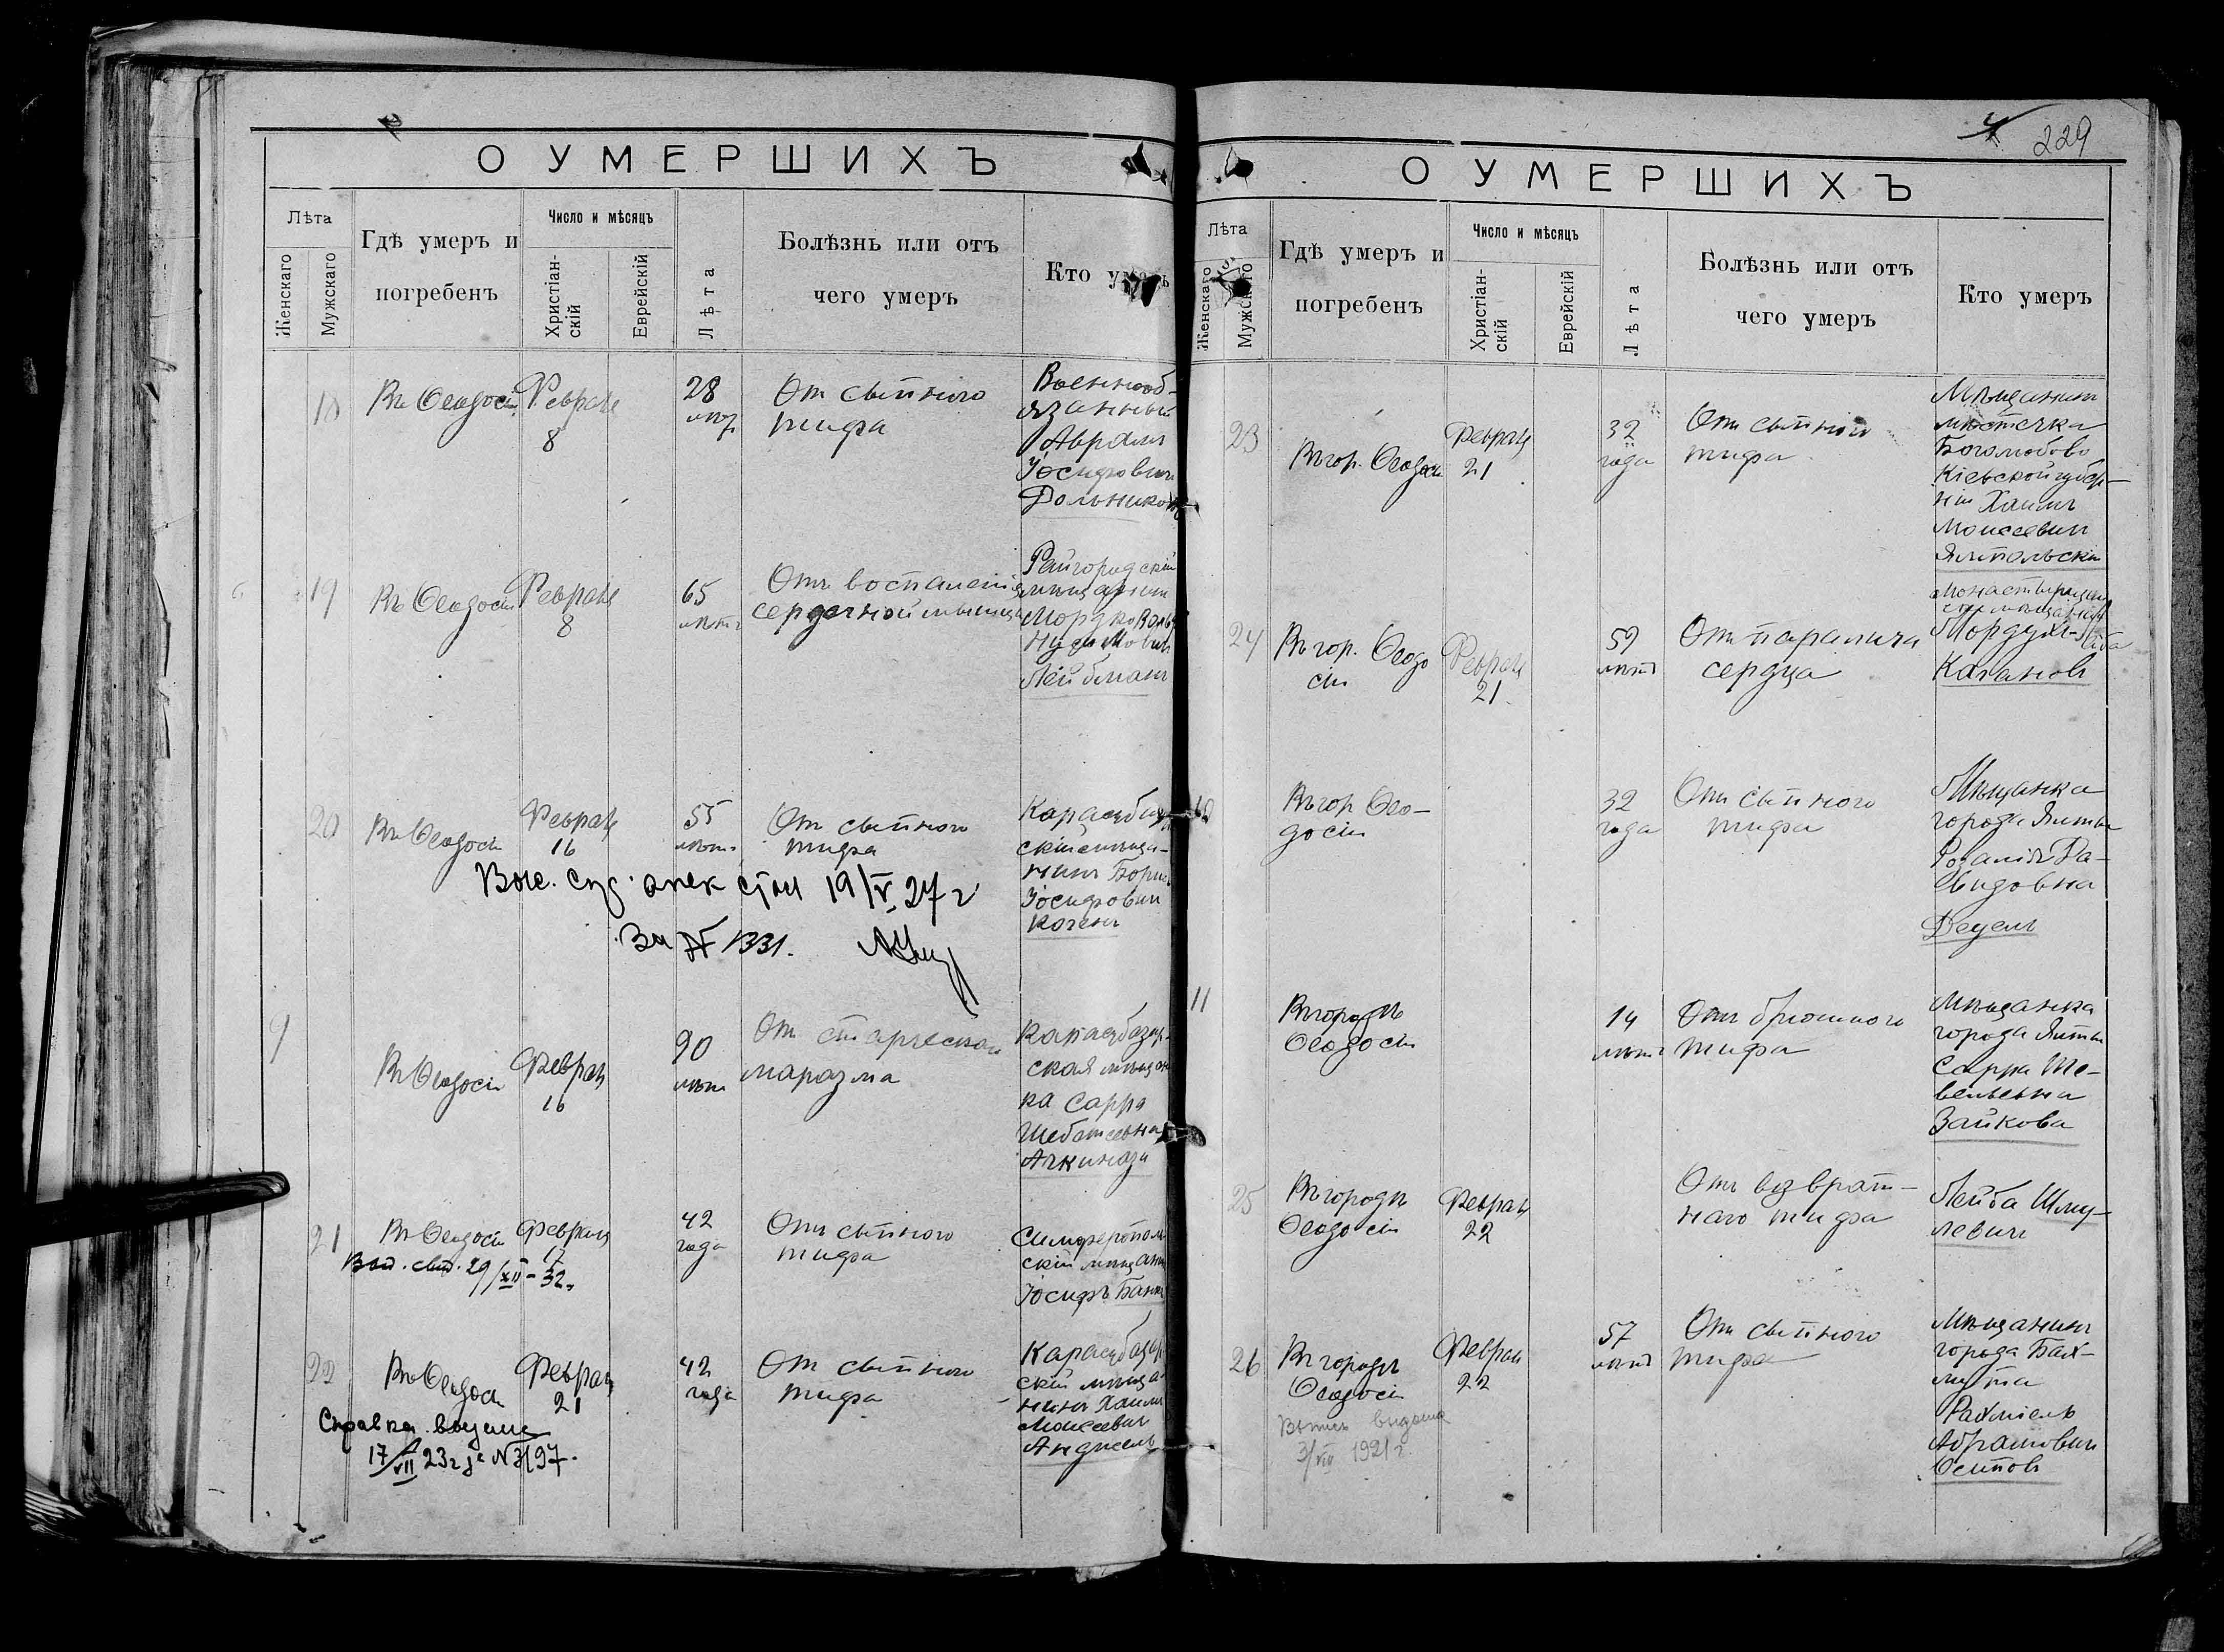 О УМЕРШИХЪ
Лѣта
Женскаго
Мужскаго
Гдѣ умеръ и
погребенъ
Число и мѣсяцъ
Христіан-
скій
Еврейскій
Лѣта
Болѣзнь или отъ
чего умеръ
Кто умеръ
18
Въ Ѳеодосіи
Февраля
8
28
лѣтъ
Отъ сыпного
тифа
Военнооб-
язанный
Авраамъ
Іосифовичъ
Дольников
19
Въ Ѳеодосіи
Февраля
8
65
лѣтъ
Отъ воспаленія
сердечной мышцы
Райгородскій
мѣщанинъ
Мордко Воль
Нухимовичъ
Лейбманъ
20
Въ Ѳеодосіи
Февраля
16
55
лѣтъ
Отъ сыпного
тифа
Карасубазар
скій мѣща-
нинъ Борис
Іосифовичъ
Коген
19/V 27 г
За № 1331.
9
Въ Ѳеодосіи
Февраля
16
90
лѣтъ
Отъ старческаго
маразма
Карасубазар-
ская мѣщан
ка Сарра
Шебетеевна
Ачкинази
21
Въ Ѳеодосіи
Февраля
17
42
года
Отъ сыпного
тифа
Симферополь
скій мѣщанин
Іосифъ Банк
Выд. свид. 29/XII-32г
22
Въ Ѳеодосіи
Февраля
21
42
года
Отъ сыпного
тифа
Карасубазар
скій мѣща-
нинъ Хаимъ
Моисеевичъ
Анджелъ
Справка выдана
17/VII 23 г № 3197.
229
О УМЕРШИХЪ
Лѣта
Женскаго
Мужскаго
Гдѣ умеръ и
погребенъ
Число и мѣсяцъ
Христіан-
скій
Еврейскій
Лѣта
Болѣзнь или отъ
чего умеръ
Кто умеръ
23
Въ гор. Ѳеодосіи
Февраля
21
32
года
Отъ сыпного
тифа
Мѣщанинъ
мѣстечка
Боголюбово
Кіевской губер-
ніи Хаимъ
Моисеевичъ
Ямпольскій
24
Въ гор. Ѳеодо
сіи
Февраля
21
59
лѣтъ
Отъ паралича
сердца
мѣщанинъ
Мордухъ-Лейба
Кагановъ
10
Въ гор Ѳео-
досіи
32
года
Отъ сыпного
тифа
Мѣщанка
города Ялты
Розалія Да-
видовна
Децель
11
Въ городѣ
Ѳеодосіи
14
лѣтъ
Отъ брюшного
тифа
Мѣщанка
города Ялты
Сарра Ше-
вельевна
Зайкова
25
Въ городѣ
Ѳеодосіи
Февраля
22
Отъ возврат-
наго тифа
Лейба Шму-
левичъ
26
Въ городѣ
Ѳеодосіи
Февраля
22
57
лѣтъ
Отъ сыпного
тифа
Мѣщанинъ
города Бах-
мута
Рахміель
Абрамовичъ
Осиповъ
выдана
3/VIII 1921 г.